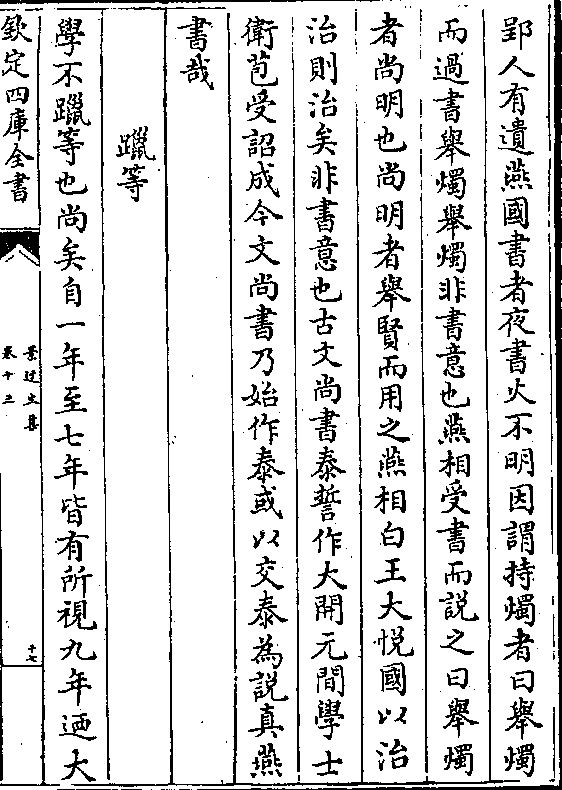 郢人有遺燕國書者夜書火不明因謂持燭者曰舉燭
而過書舉燭舉燭非書意也燕相受書而説之曰舉燭
者尚明也尚明者舉賢而用之燕相白王大悦國以治
治則治矣非書意也古文尚書泰誓作大開元間學士
衛苞受詔成今文尚書乃始作泰或以交泰為説真燕
書哉
躐等
學不躐等也尚矣自一年至七年皆有所視九年迺大
欽定四庫全書
景迂生集
卷十三
十七